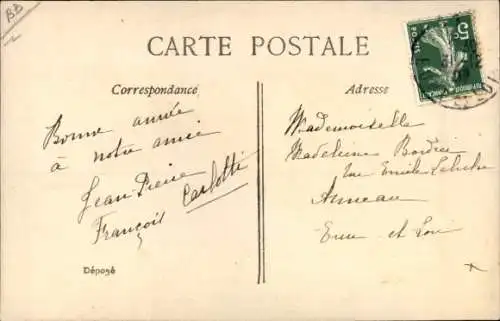 BB
CARTE POSTALE
Correspondance
Bonne année
à notre amie
Jean Pierre
François
Carlotti
Déposé
Adresse
Mademoiselle
Madeleine Bordier
Rue Emile Labiche
Auneau
Eure et Loir
5c